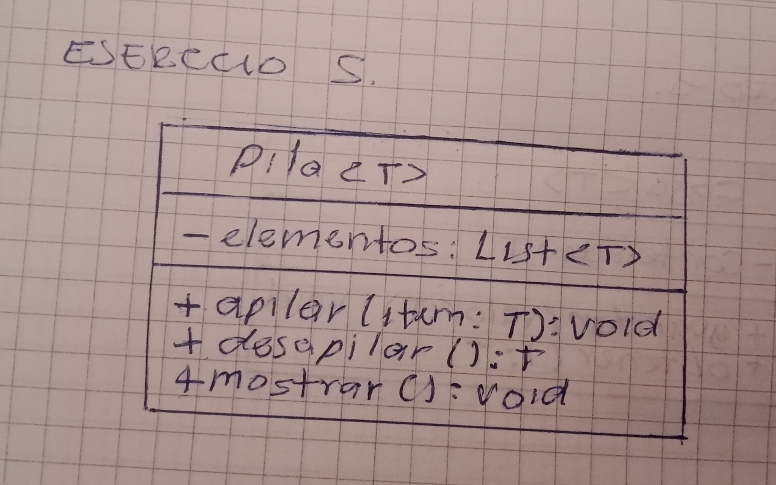 ESERCCIO 5.
Pila <T>
- elementos: List <T>
+ apilar (item: T): void
+ desapilar (): T
+ mostrar (): void